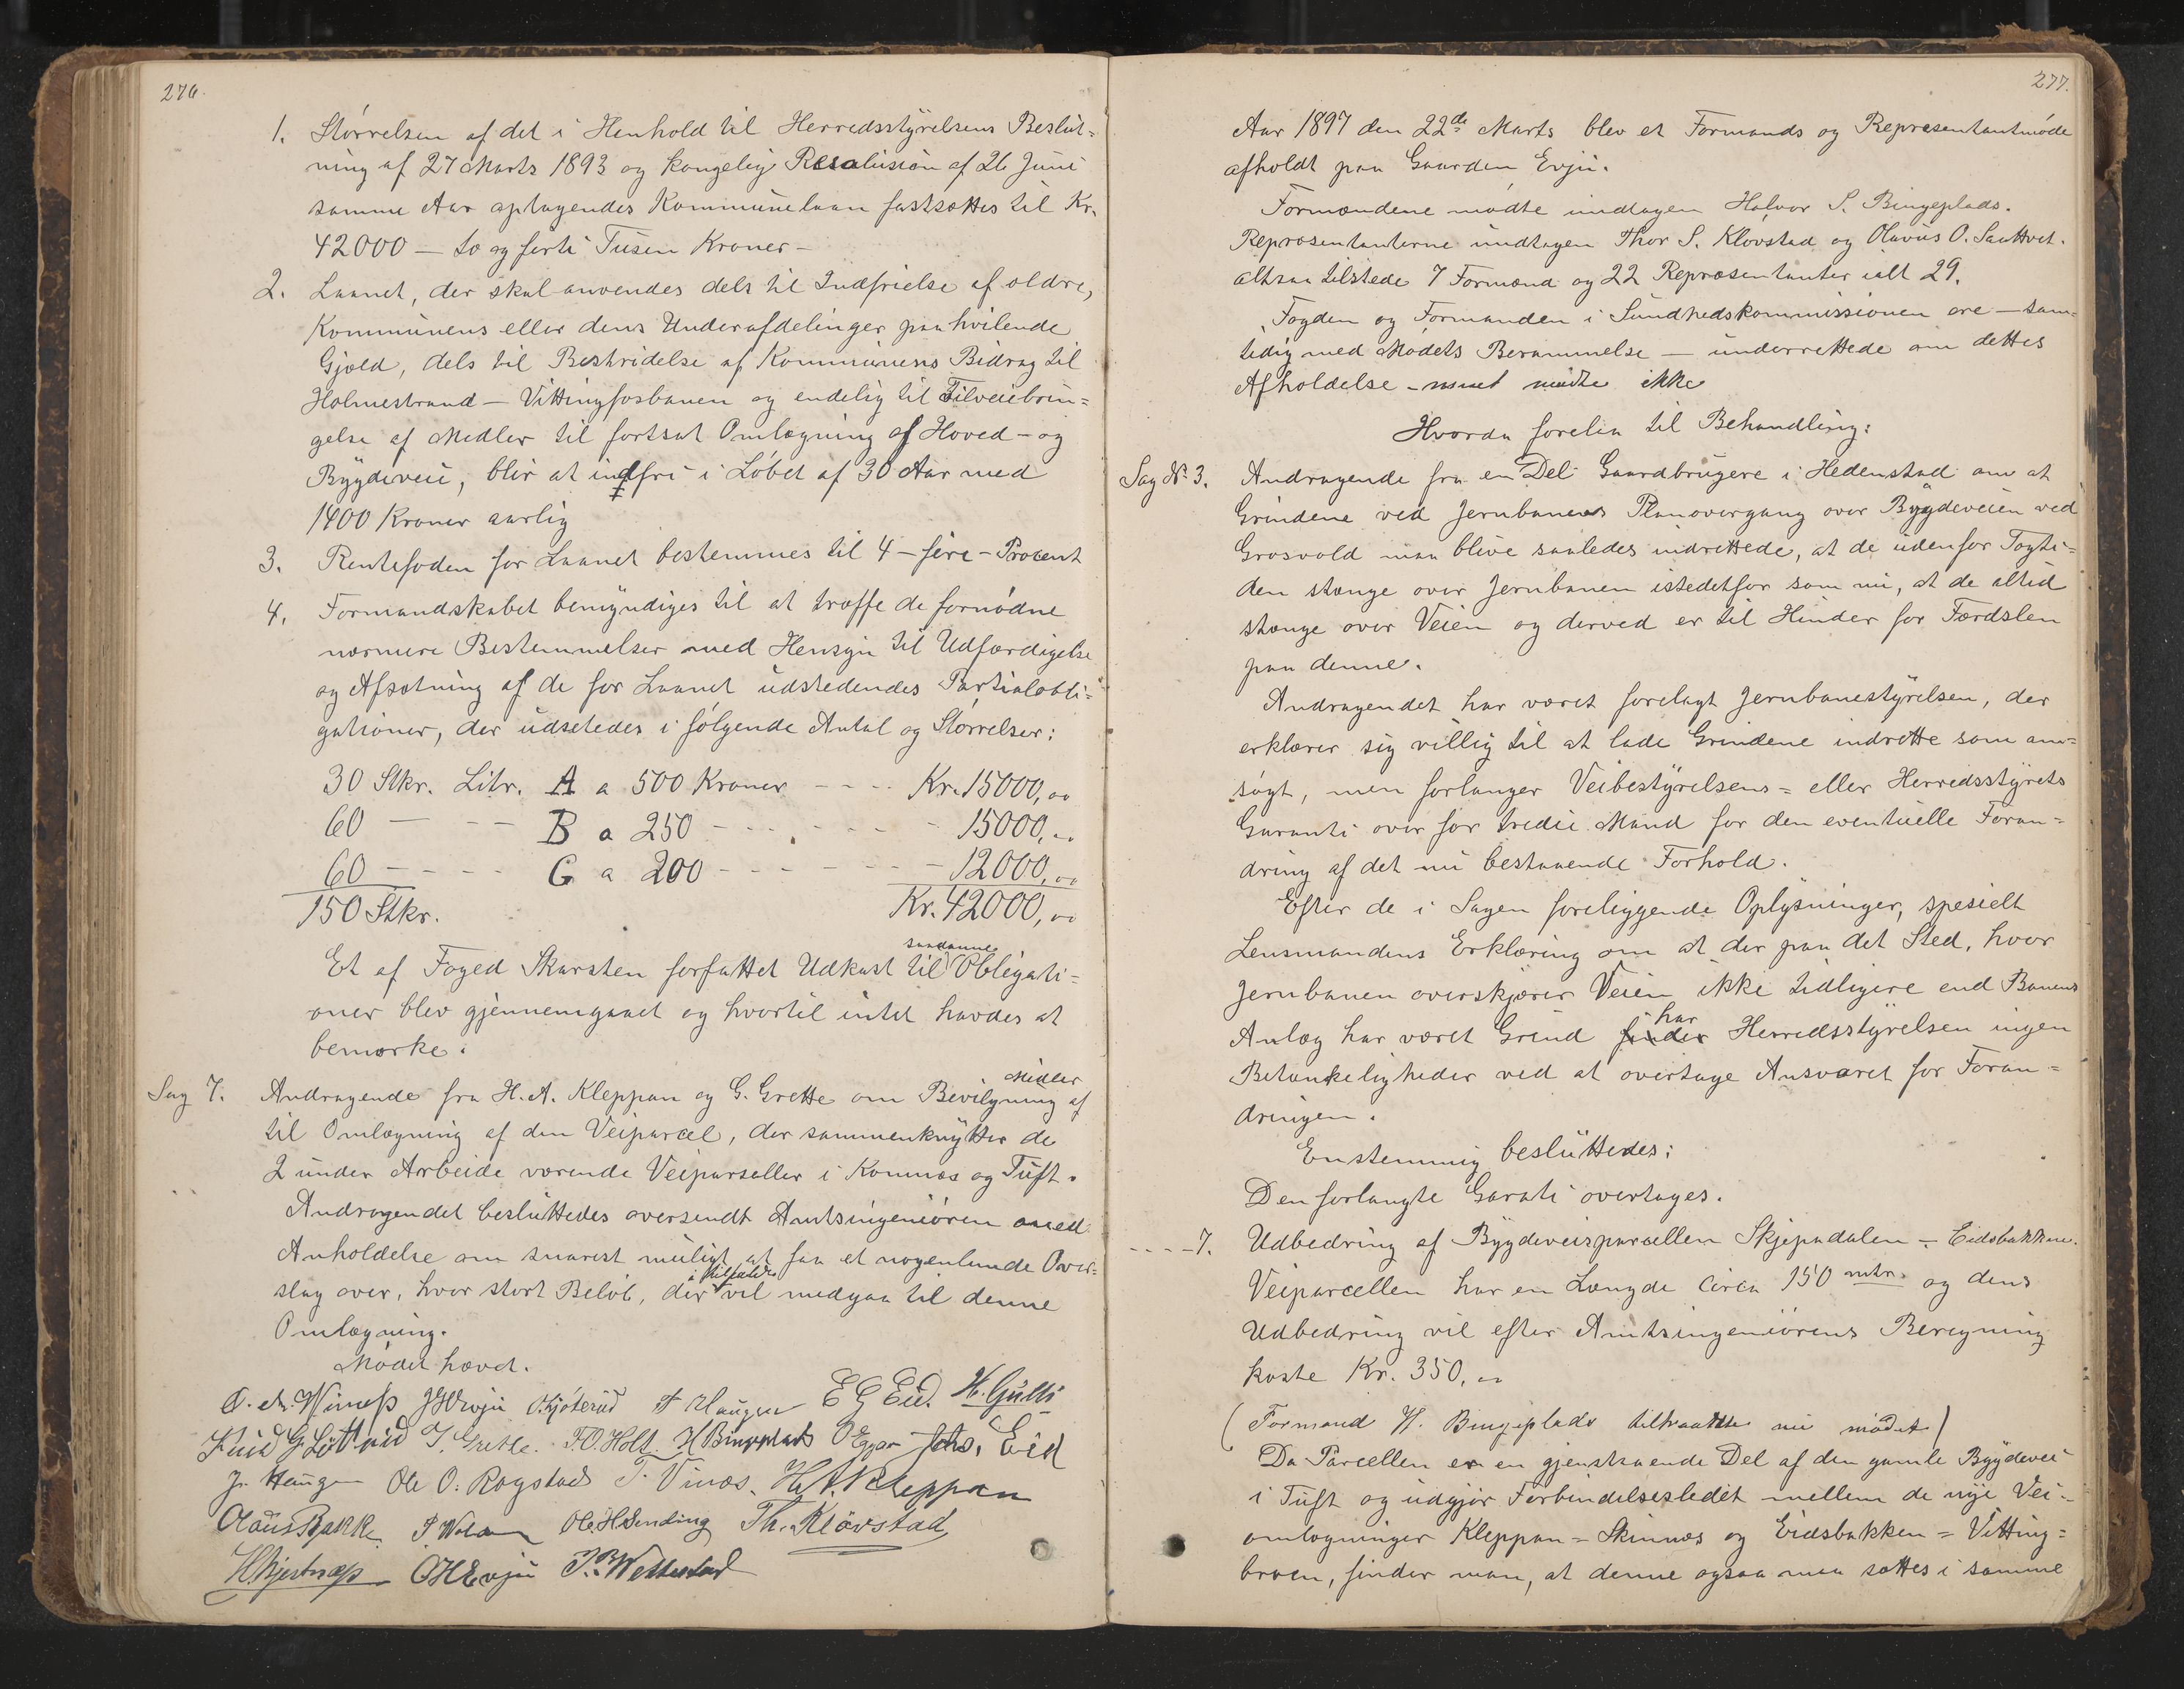 276.
1. Störrelsen af det i Henhold til Herredsstyrelsens Beslut=
ning af 27 Marts 1893 og kongelig Resolusion af 26 Juni
samme Aar optagendes Kommunelaan fastsættes til Kr.
42000 — to og førti Tusen Kroner —
2. Laanet, der skal anvendes dels til Indfrielse af ældre,
Kommunens eller dens Underafdelinger paahvilende
Gjæld, dels til Bestridelse af Kommunens Bidrag til
Holmestrand — Vittingfosbanen og endelig til Tilveiebrin=
gelse af Midler til fortsat Omlægning af Hoved- og
Bygdeveie, blir at indfri i Löbet af 30 Aar med
1400 Kroner aarlig
3. Rentefoden for Laanet bestemmes til 4 — fire — Procent
4. Formandskabet bemyndiges til at træffe de fornödne
nærmere Bestemmelser med Hensyn til Udfærdigelse
og Afsætning af de for Laanet udstedendes Partialobli=
gationer, der udstedes i fölgende Antal og Störrelser:
30 Stkr. Litr. A a 500 Kroner - - - - Kr. 15000,00
60 — - — B a 250 - - - - - - - 15000,00
60 - - - - - C a 200 - - - - - - - 12000,00
150 Stkr. Kr. 42000,00
saadanne
Et af Foged Skarsten forfattet Udkast til Obligati=
oner blev gjennemgaaet og hvortil intet havdes at
bemærke.
Midler
Sag 7. Andragende fra H. A. Kleppan og G. Grette om Bevilgning af
til Omlægning af den Veiparcel, der sammenknytter de
2 under Arbeide værende Veiparseller i Komnæs og Tuft.
Andragendet besluttedes oversendt Amtsingeniören med
Anholdelse om snarest muligt at faa et nogenlunde Over=
i tilfælde
slag over, hvor stort Belöb, der vil medgaa til denne
Omlægning.
Mödet hævet.
J H Evju O. Kjöterud H Haugen E G Eid. H. Gulli
T. Grette. F. O. Holt. H Bingeplads O Eggar Johs. Eid
J. Haugen Ole O. Rogstad T. Vinæs. H. A. Kleppan
Olaus Bakke Ole H Sending Th. Klövstad
O H Evju T. B. Wettestad
277.
Aar 1897 den 22de Marts blev et Formands og Representantmöde
afholdt paa Gaarden Evju.
Formændene mødte undtagen Halvor S. Bingeplads.
Repræsentanterne undtagen Thor S. Klövstad og Olavus O.
altsaa tilstede 7 Formænd og 22 Repræsentanter ialt 29.
Fogden og Formanden i Sundhedskommissionen ere — sam=
tidig med Mödets Berammelse — underrettede om dettes
Afholdelse — men mödte ikke
Hvorda forelaa til Behandling:
Sag No 3. Andragende fra en Del Gaardbrugere i Hedenstad om at
Grindene ved Jernbanens Planovergang over Bygdeveien ved
Grosvold maa blive saaledes indrettede, at de udenfor Togti=
den stænge over Jernbanen istedetfor som nu, at de altid
stænge over Veien og derved er til Hinder for Færdslen
paa denne.
Andragendet har været forelagt Jernbanestyrelsen, der
erklærer sig villig til at lade Grindene indrette som an=
søgt, men forlanger Veibestyrelsens = eller Herredsstyrets
Garanti over for tredie Mand for den eventuelle Foran=
dring af det nu bestaaende Forhold.
Efter de i Sagen foreliggende Oplysninger, spesielt
Lensmandens Erklæring om at der paa det Sted, hvor
Jernbanen overskjærer Veien ikke tidligere end Banens
har
Anlæg har været Grind finder Herredsstyrelsen ingen
Betænkeligheder ved at overtage Ansvaret for Foran=
dringen.
Enstemmig besluttedes:
Den forlangte Garati overtages.
- - - - 7. Udbedring af Bygdeveisparcellen Skjepadalen — Eidsbakken.
Veiparcellen har en Længde circa 150 mtr. og dens
Udbedring vil efter Amtsingeniörens Beregning
koste Kr. 350,00
(Formand H. Bingeplads tiltraadte nu mödet)
Da Parcellen er en gjenstaaende Del af den gamle Bygdevei
i Tuft og udgjör Forbindelsesledet mellem de nye Vei-
omlægninger Kleppan = Skinnæs og Eidsbakken = Vitting=
broen, finder man, at denne ogsaa maa sættes i samme